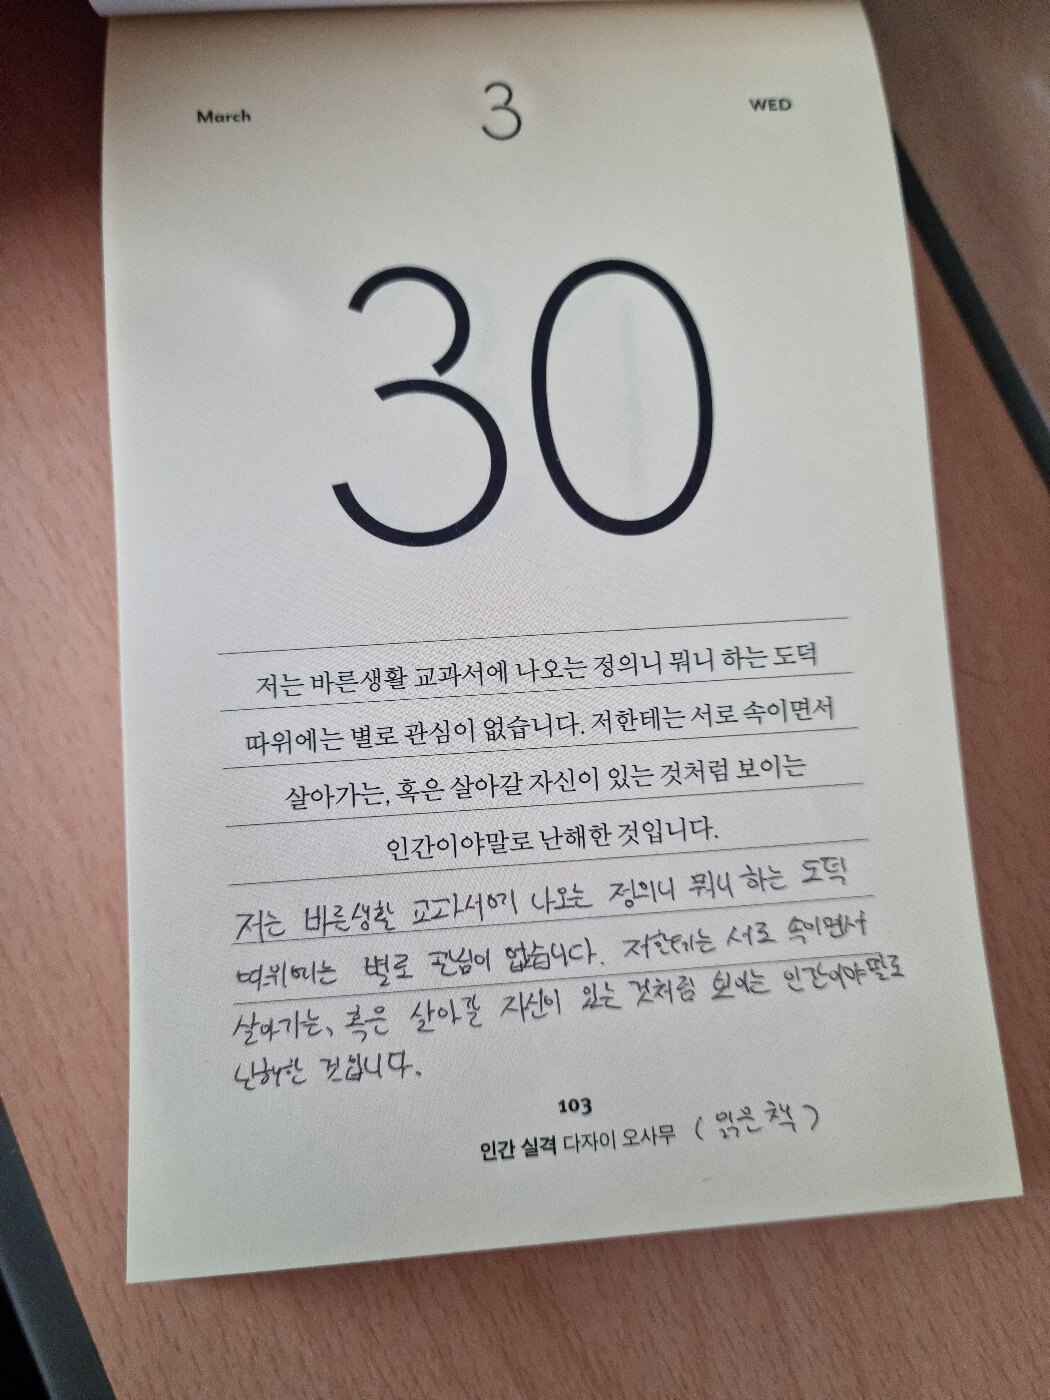 March 3 WED
30
저는 바른생활 교과서에 나오는 정의니 뭐니 하는 도덕
따위에는 별로 관심이 없습니다. 저한테는 서로 속이면서
살아가는, 혹은 살아갈 자신이 있는 것처럼 보이는
인간이야말로 난해한 것입니다.
저는 바른생활 교과서에 나오는 정의니 뭐니 하는 도덕
따위에는 별로 관심이 없습니다. 저한테는 서로 속이면서
살아가는, 혹은 살아갈 자신이 있는 것처럼 보이는 인간이야말로
난해한 것입니다.
103
인간 실격 다자이 오사무 (읽은 책)